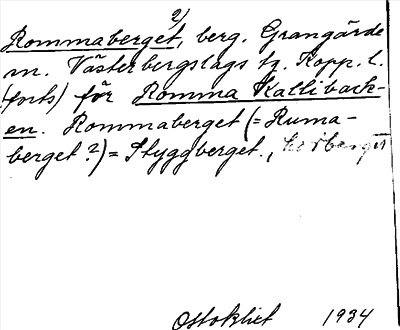 2)
Rommaberget, berg. Grangärde
m. Västerbergslags tg. Kopp. l.
(forts) för Romma Kalliback-
en. Rommaberget (= Ruma-
berget?) = Styggberget.,
Ostoklict 1934